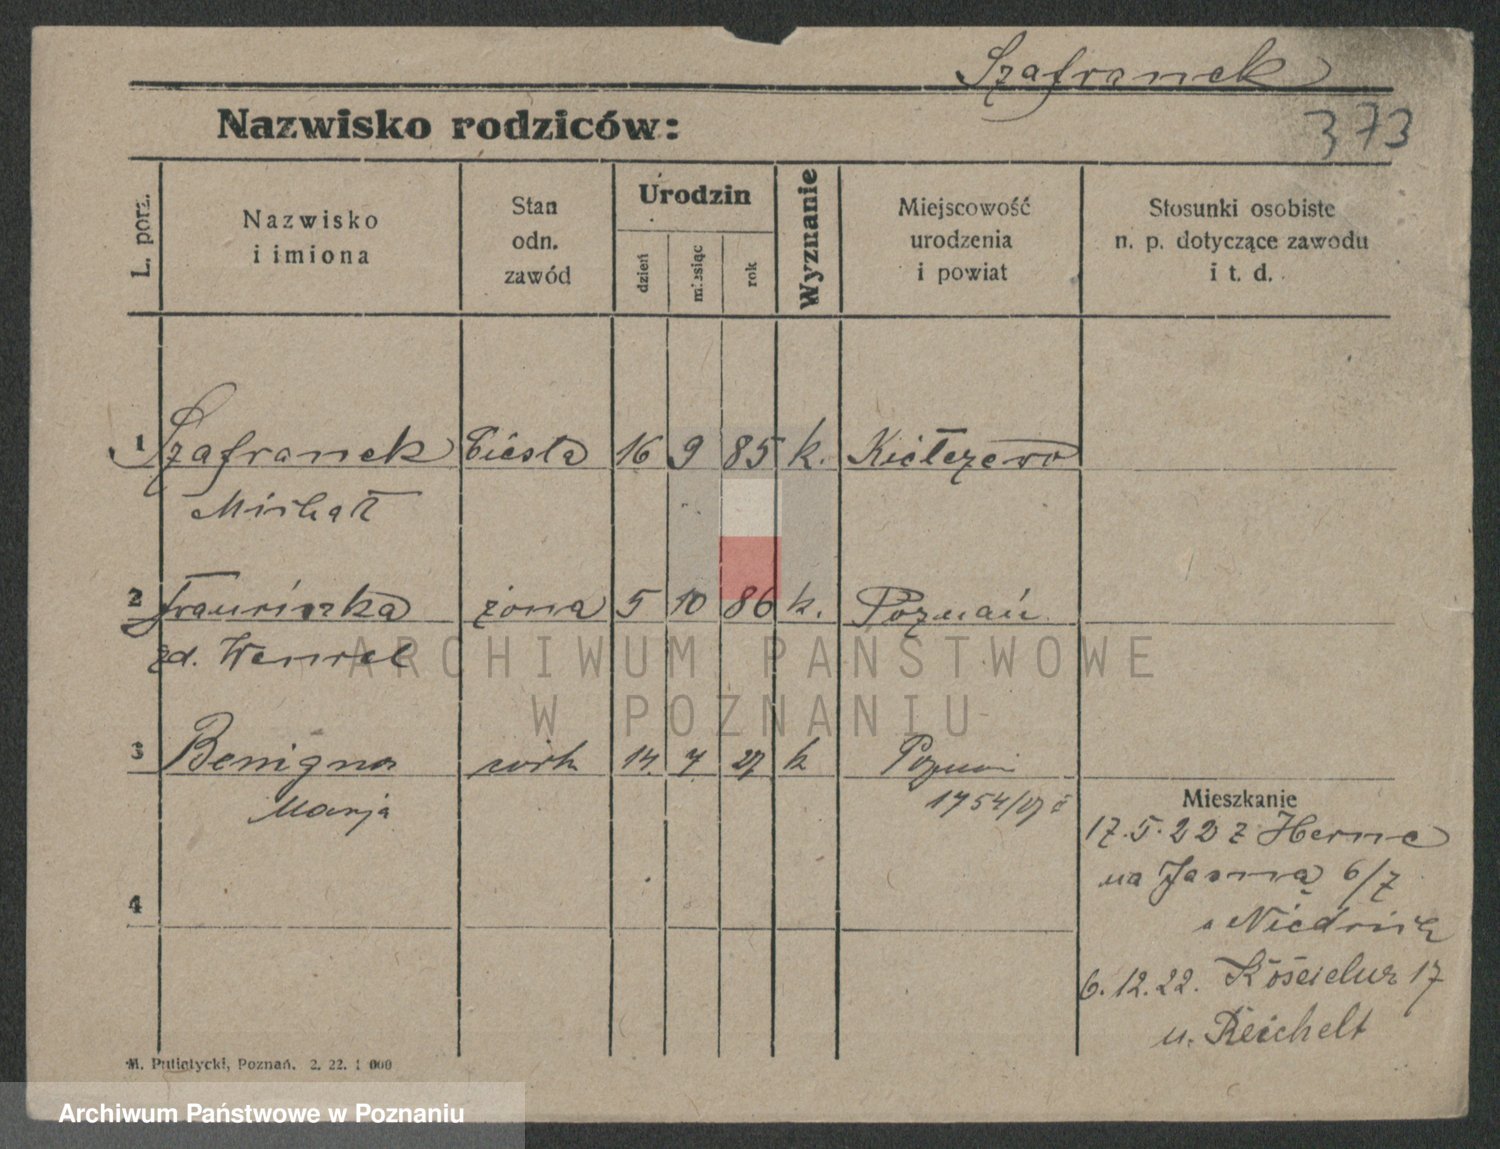 Szafranek
373
Nazwisko rodziców:
L. porz.
Nazwisko
i imiona
Stan
odn.
zawód
Urodzin
dzień
miesiąc
rok
Wyznanie
Miejscowość
urodzenia
i powiat
Stosunki osobiste
n. p. dotyczące zawodu
i t. d.
1 Szafranek Cieśla 16 9 85 k. Kiełczewo
Michał
2 Franciszka żona 5 10 86 k. Poznań
zd. Wenzel
3 Benigna córk 14. 7. 27 k Poznań
Marja
1754/27
4
Mieszkanie
17.5.22 z Herne
na Jasną 6/7
6.12.22. 17
u. Reichelt
M. Putiatycki, Poznań. 2. 22. 1 000
ARCHIWUM PAŃSTWOWE
W POZNANIU
Archiwum Państwowe w Poznaniu